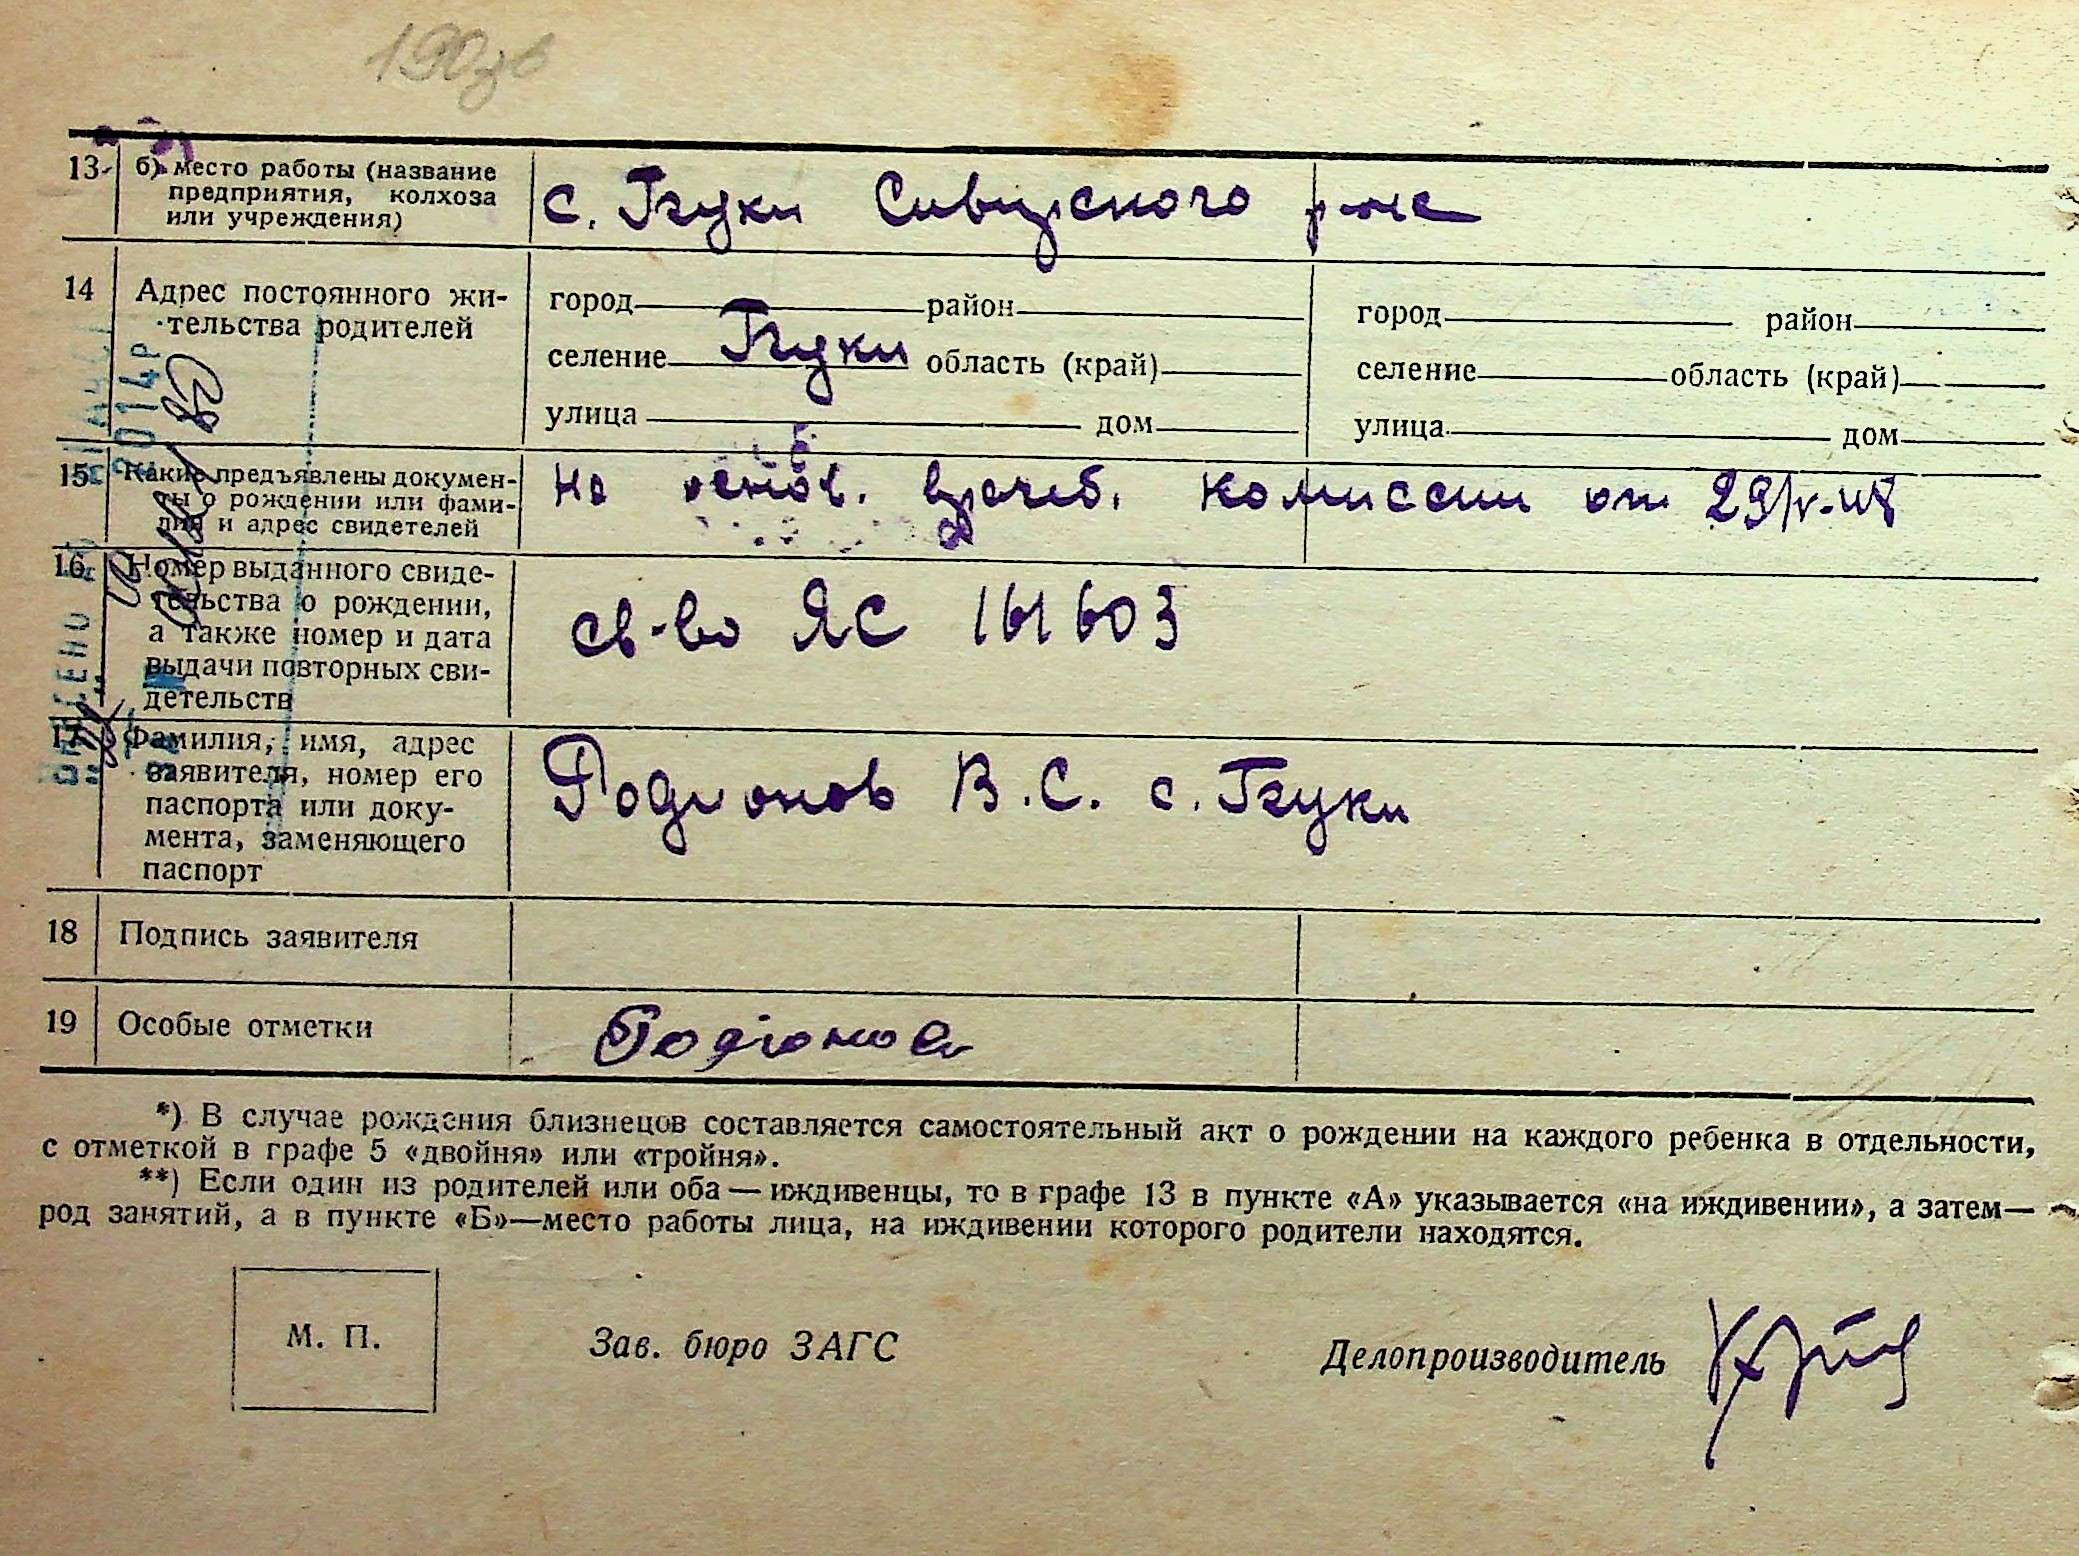 190
13
б) место работы (название
предприятия, колхоза
или учреждения)
с.
14
Адрес постоянного жи-
тельства родителей
город район
селение область (край)
улица дом
город район
селение область (край)
улица дом
15
Какие предъявлены докумен-
ты о рождении или фами-
лия и адрес свидетелей
на основ. врачеб. комиссии от
16
Номер выданного свиде-
тельства о рождении,
а также номер и дата
выдачи повторных сви-
детельств
св-во ЯС 161603
17
Фамилия, имя, адрес
заявителя, номер его
паспорта или доку-
мента, заменяющего
паспорт
Родионов В.С. с.
18
Подпись заявителя
19
Особые отметки
Родионов
*) В случае рождения близнецов составляется самостоятельный акт о рождении на каждого ребенка в отдельности,
с отметкой в графе 5 «двойня» или «тройня».
**) Если один из родителей или оба — иждивенцы, то в графе 13 в пункте «А» указывается «на иждивении», а затем—
род занятий, а в пункте «Б»—место работы лица, на иждивении которого родители находятся.
М. П.
Зав. бюро ЗАГС
Делопроизводитель